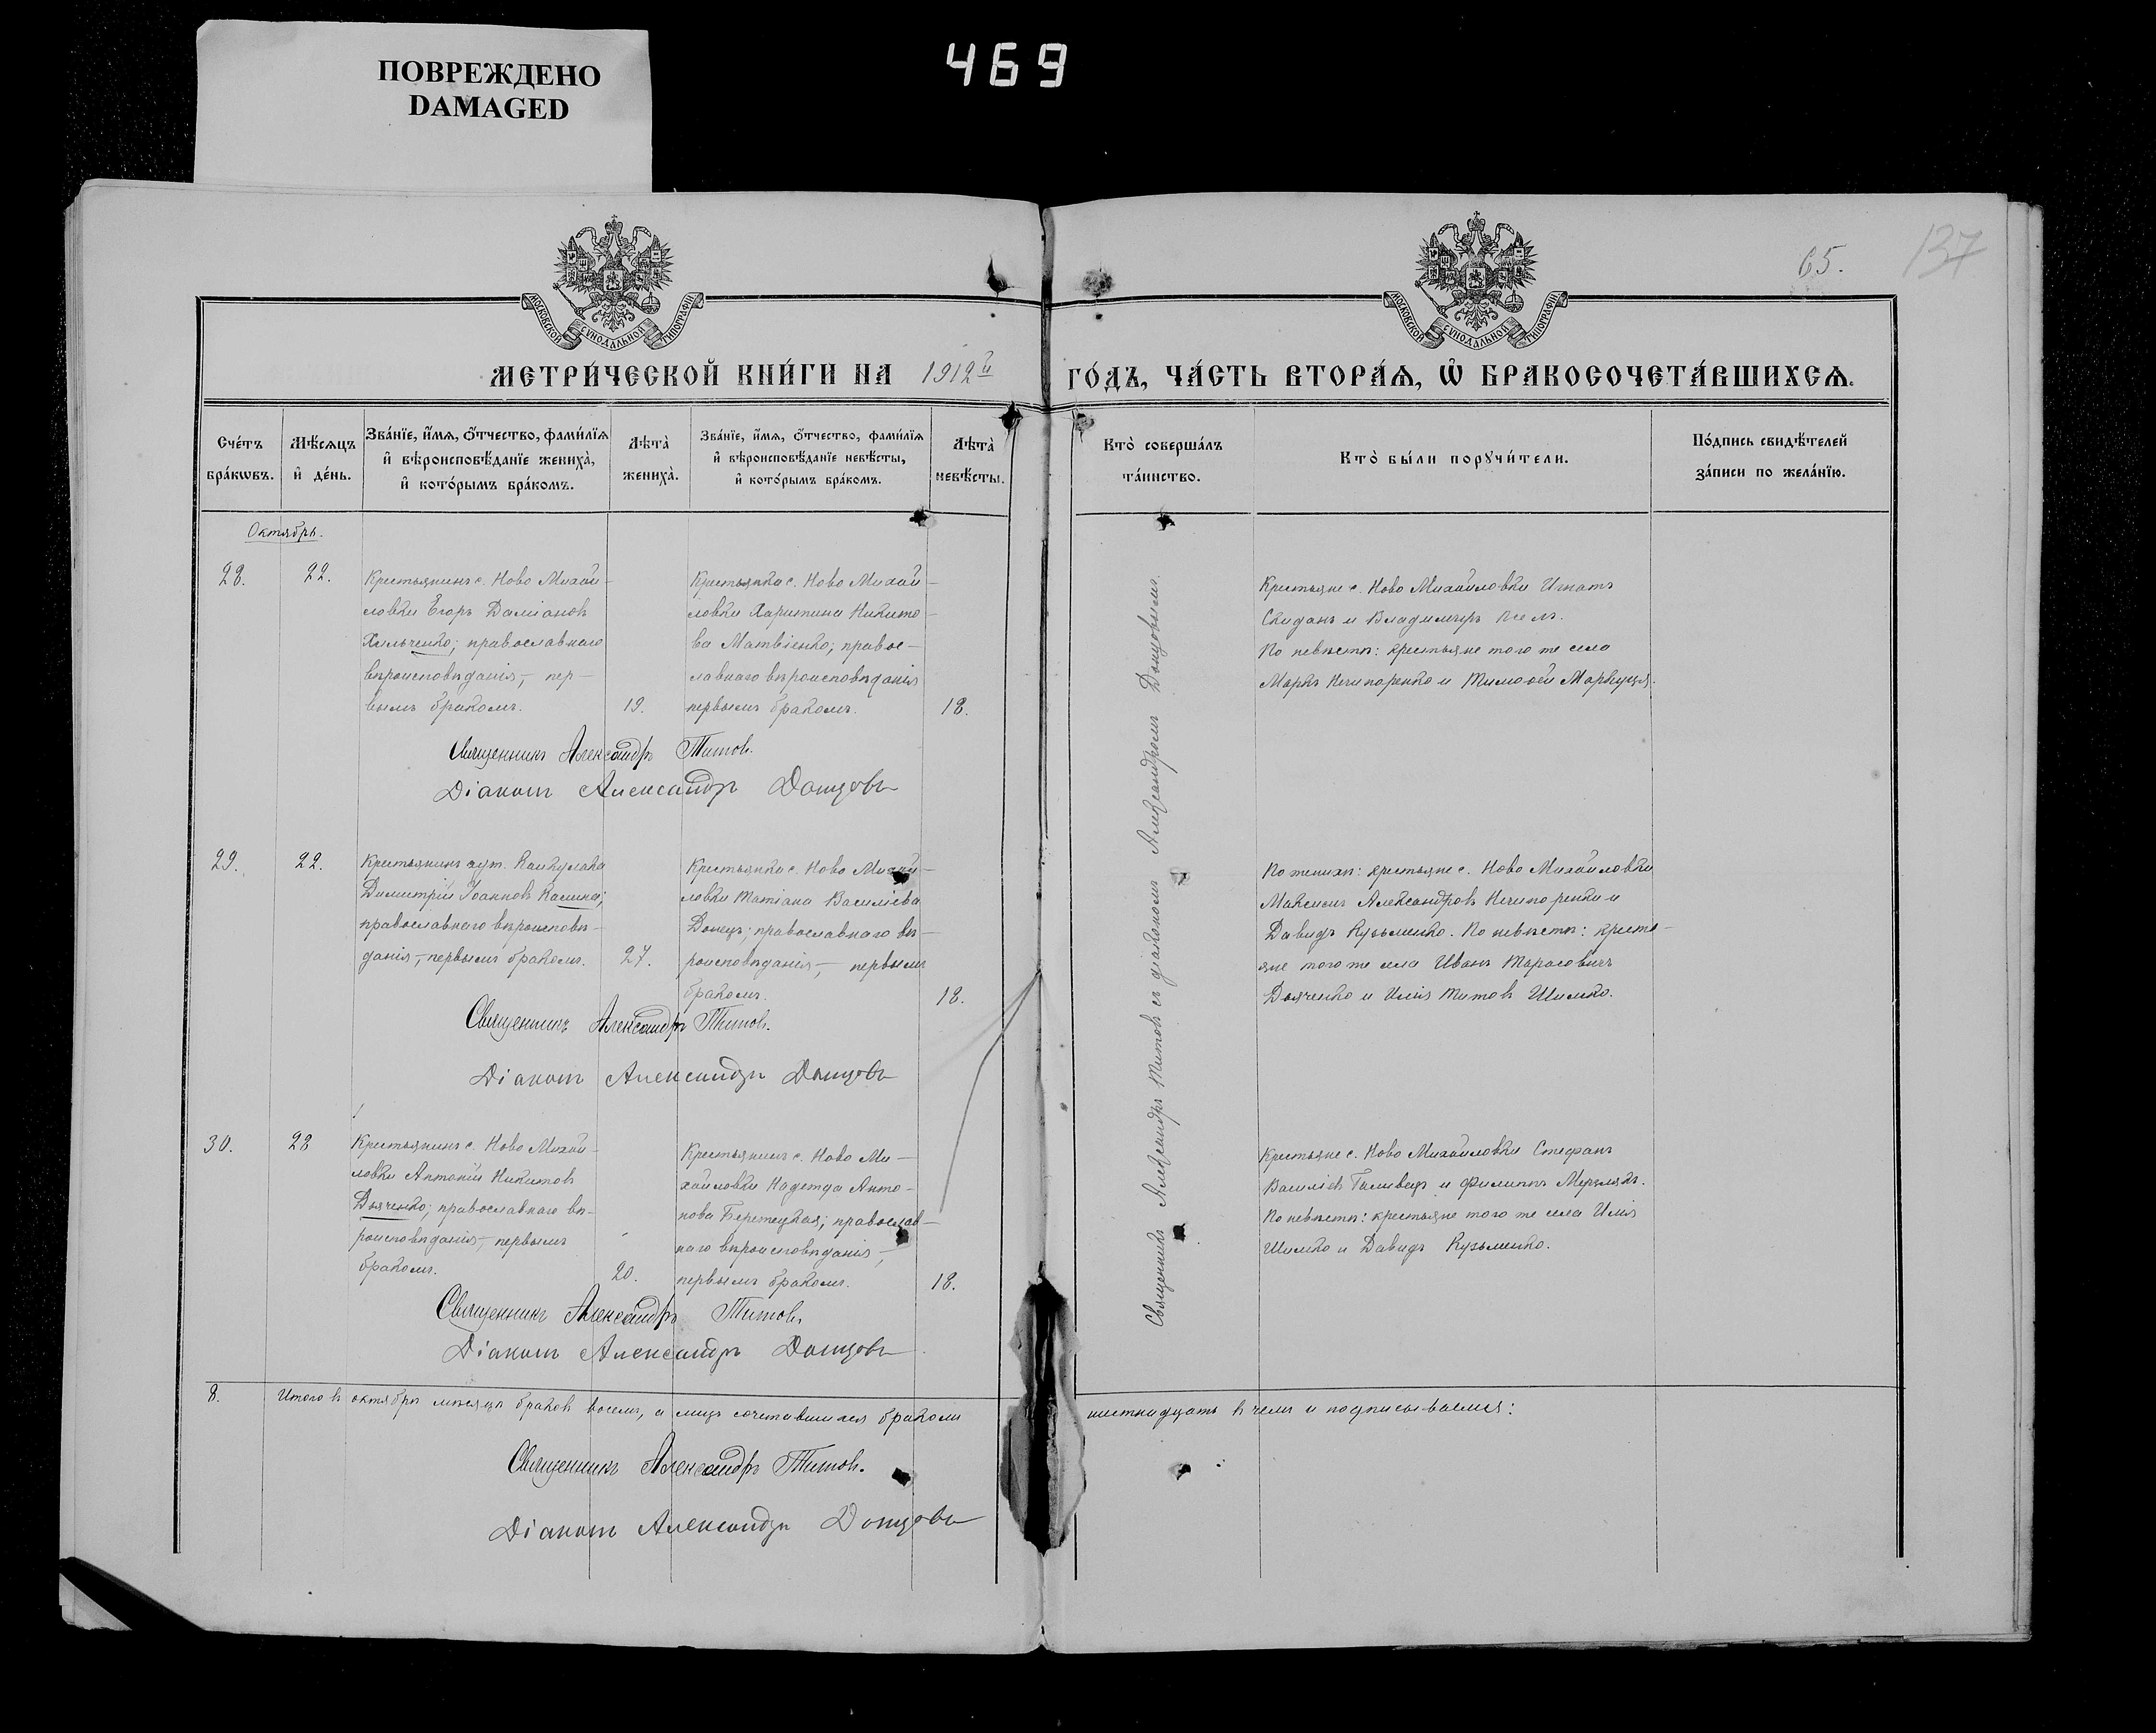 ПОВРЕЖДЕНО
DAMAGED
469
65.
137
МОСКОВСКОЙ СѴНОДАЛЬНОЙ ТИПОГРАФІИ
МОСКОВСКОЙ СѴНОДАЛЬНОЙ ТИПОГРАФІИ
МЕТРИ́ЧЕСКОЙ КНИ́ГИ НА 1912й ГО́ДЪ, ЧА́СТЬ ВТОРА́Я, Ѡ҆ БРАКОСОЧЕТА́ВШИХСѦ.
Сче́тъ
бра́кѡвъ.
Мѣ́сяцъ
и҆ де́нь.
Зва́нїе, и҆́мя, о҆́тчество, фами́лїя
и҆ вѣроисповѣ́данїе жениха̀,
и҆ кото́рымъ бра́комъ.
Лѣта̀
жениха̀.
Зва́нїе, и҆́мя, о҆́тчество, фами́лїя
и҆ вѣроисповѣ́данїе невѣ́сты,
и҆ кото́рымъ бра́комъ.
Лѣта̀
невѣ́сты.
Кто̀ соверша́лъ
та́инство.
Кто̀ бы́ли порꙋчи́тели.
По́дпись свидѣ́телей
за́писи по жела́нїю.
Октябрь.
28.
22.
Крестьянинъ с. Ново Михай-
ловки Егоръ Даміановъ
Хильченко; православнаго
вѣроисповѣданія, — пер-
вымъ бракомъ.
19.
Крестьянка с. Ново Михай-
ловки Харитина Никито-
ва Матвіенко; правос-
лавнаго вѣроисповѣданія
первымъ бракомъ.
18.
Крестьяне с. Ново Михайловки Игнатъ
Скиданъ и Владимиръ
По невѣсте: крестьяне того же села
Маркъ Нечипоренко и Тимофей
Священникъ Александръ Титовъ.
Діаконъ Александръ Донцовъ
29.
22.
Крестьянинъ хут. Каикулака
Димитрій Іоанновъ Калина;
православнаго вѣроисповѣ-
данія, — первымъ бракомъ.
27.
Крестьянка с. Ново Михай-
ловки Татіана Василіева
Донецъ; православнаго вѣ-
роисповѣданія, — первымъ
бракомъ.
18.
По женихѣ: крестьяне с. Ново Михайловки
Максимъ Александровъ Нечипоренко и
Давидъ Кузьменко. По невѣсте: кресть-
яне того же села Иванъ Тарасовичъ
Дьяченко и Илія Титовъ Шимко.
Священникъ Александръ Титовъ.
Діаконъ Александръ Донцовъ
30.
28
Крестьянинъ с. Ново Михай-
ловки Антоній Никитовъ
Дьяченко; православнаго вѣ-
роисповѣданія, — первымъ
бракомъ.
20.
Крестьянинъ с. Ново Ми-
хайловки Надежда Анто-
нова Бережецкая; православ-
наго вѣроисповѣданія, —
первымъ бракомъ.
18.
Крестьяне с. Ново Михайловки Стефанъ
Василіевъ и Филиппъ
По невѣсте: крестьяне того же села Илія
Шимко и Давидъ Кузьменко.
Священникъ Александръ Титовъ
Діаконъ Александръ Донцовъ
Священникъ Александръ Титовъ съ діакономъ Александромъ Донцовымъ.
8.
Итого въ октябрѣ мѣсяцѣ браковъ восемь, а лицъ сочетавшихся бракомъ шестнадцать въ чемъ и подписываемся:
Священникъ Александръ Титовъ.
Діаконъ Александръ Донцовъ